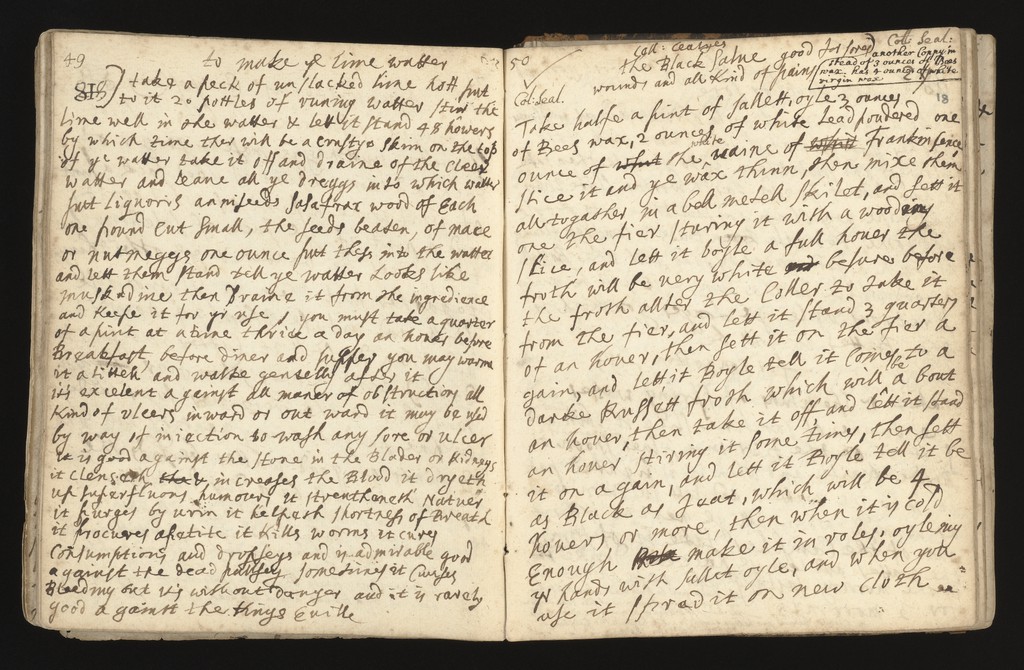 49
to make ye lime watter
take a peck of un slacked lime hott put
to it 20 pottles of runing watter stir the
Lime well in the watter & lett it stand 48 howers
by which time ther will be a crusty skinn on the top
of ye watter take it off and draine of the cleer
watter and leave all ye dreggs in to which watter
putt Liquoris anniseeds sasafrax wood of Each
one pound cut small, the seeds beaten, of mace
or nutmeggs one ounce put thes into the watter
and lett them stand tell ye watter Looks like
muskadine then draine it from the ingredience
and keepe it for yr use, you must take a quarter
of a pint at a time thrice a day an houer before
Breakfast before diner and supper you may warm
it a littell and walke gentelly after it
it's excelent against all maner of obstructions all
kind of vlcers inward or out ward it may be used
by way of iniection to wash any sore or ulcer
it is good against the stone in the Blader or Kidneys
it clenseth increases the Blood it dryeth
up superfluous humours it strentheneth Natuer
it purges by urin it helpeth shortness of Breath
it procures apatite it kills worms it cures
Consumptions and dropseys and is admirable good
against the dead palsey sometimes it Causes
Bleeding out us without danger and it is rarely
good against the kings Eville
50
Coll: Sealyes
the Black Salve good for sores
wounds and all kind of pains
Coll: Seal:
another Coppy in
stead of 3 ounces of Bees
wax. has 4 ounces of white
virgin wax.
18
Col: Seal.
Take halfe a pint of sallett oyle 3 ounces
of Bees wax, 2 ounces of white Lead poudered one
ounce of the white of frankinsence,
slice it and ye wax thinn, then mixe them
all togather in a bell metell skilet, and sett it
one the fier stiring it with a wooding
slice, and lett it boyle a full hower the
froth will be very white be sure before
the froth allter the Coller to take it
from the fier, and lett it stand 3 quarters
of an hower, then sett it on the fier a
gain, and lett it Boyle tell it comes to a
darke Russett froth which will be a bout
an hower, then take it off, and lett it stand
an hower stiring it some times, then sett
it on again, and lett it Boyle tell it be
as Black as Jeat, which will be 4
howers or more, then when it is cold
Enough make it in roles, oyleing
yr hands with sallet oyle, and when you
use it spread it on new cloth